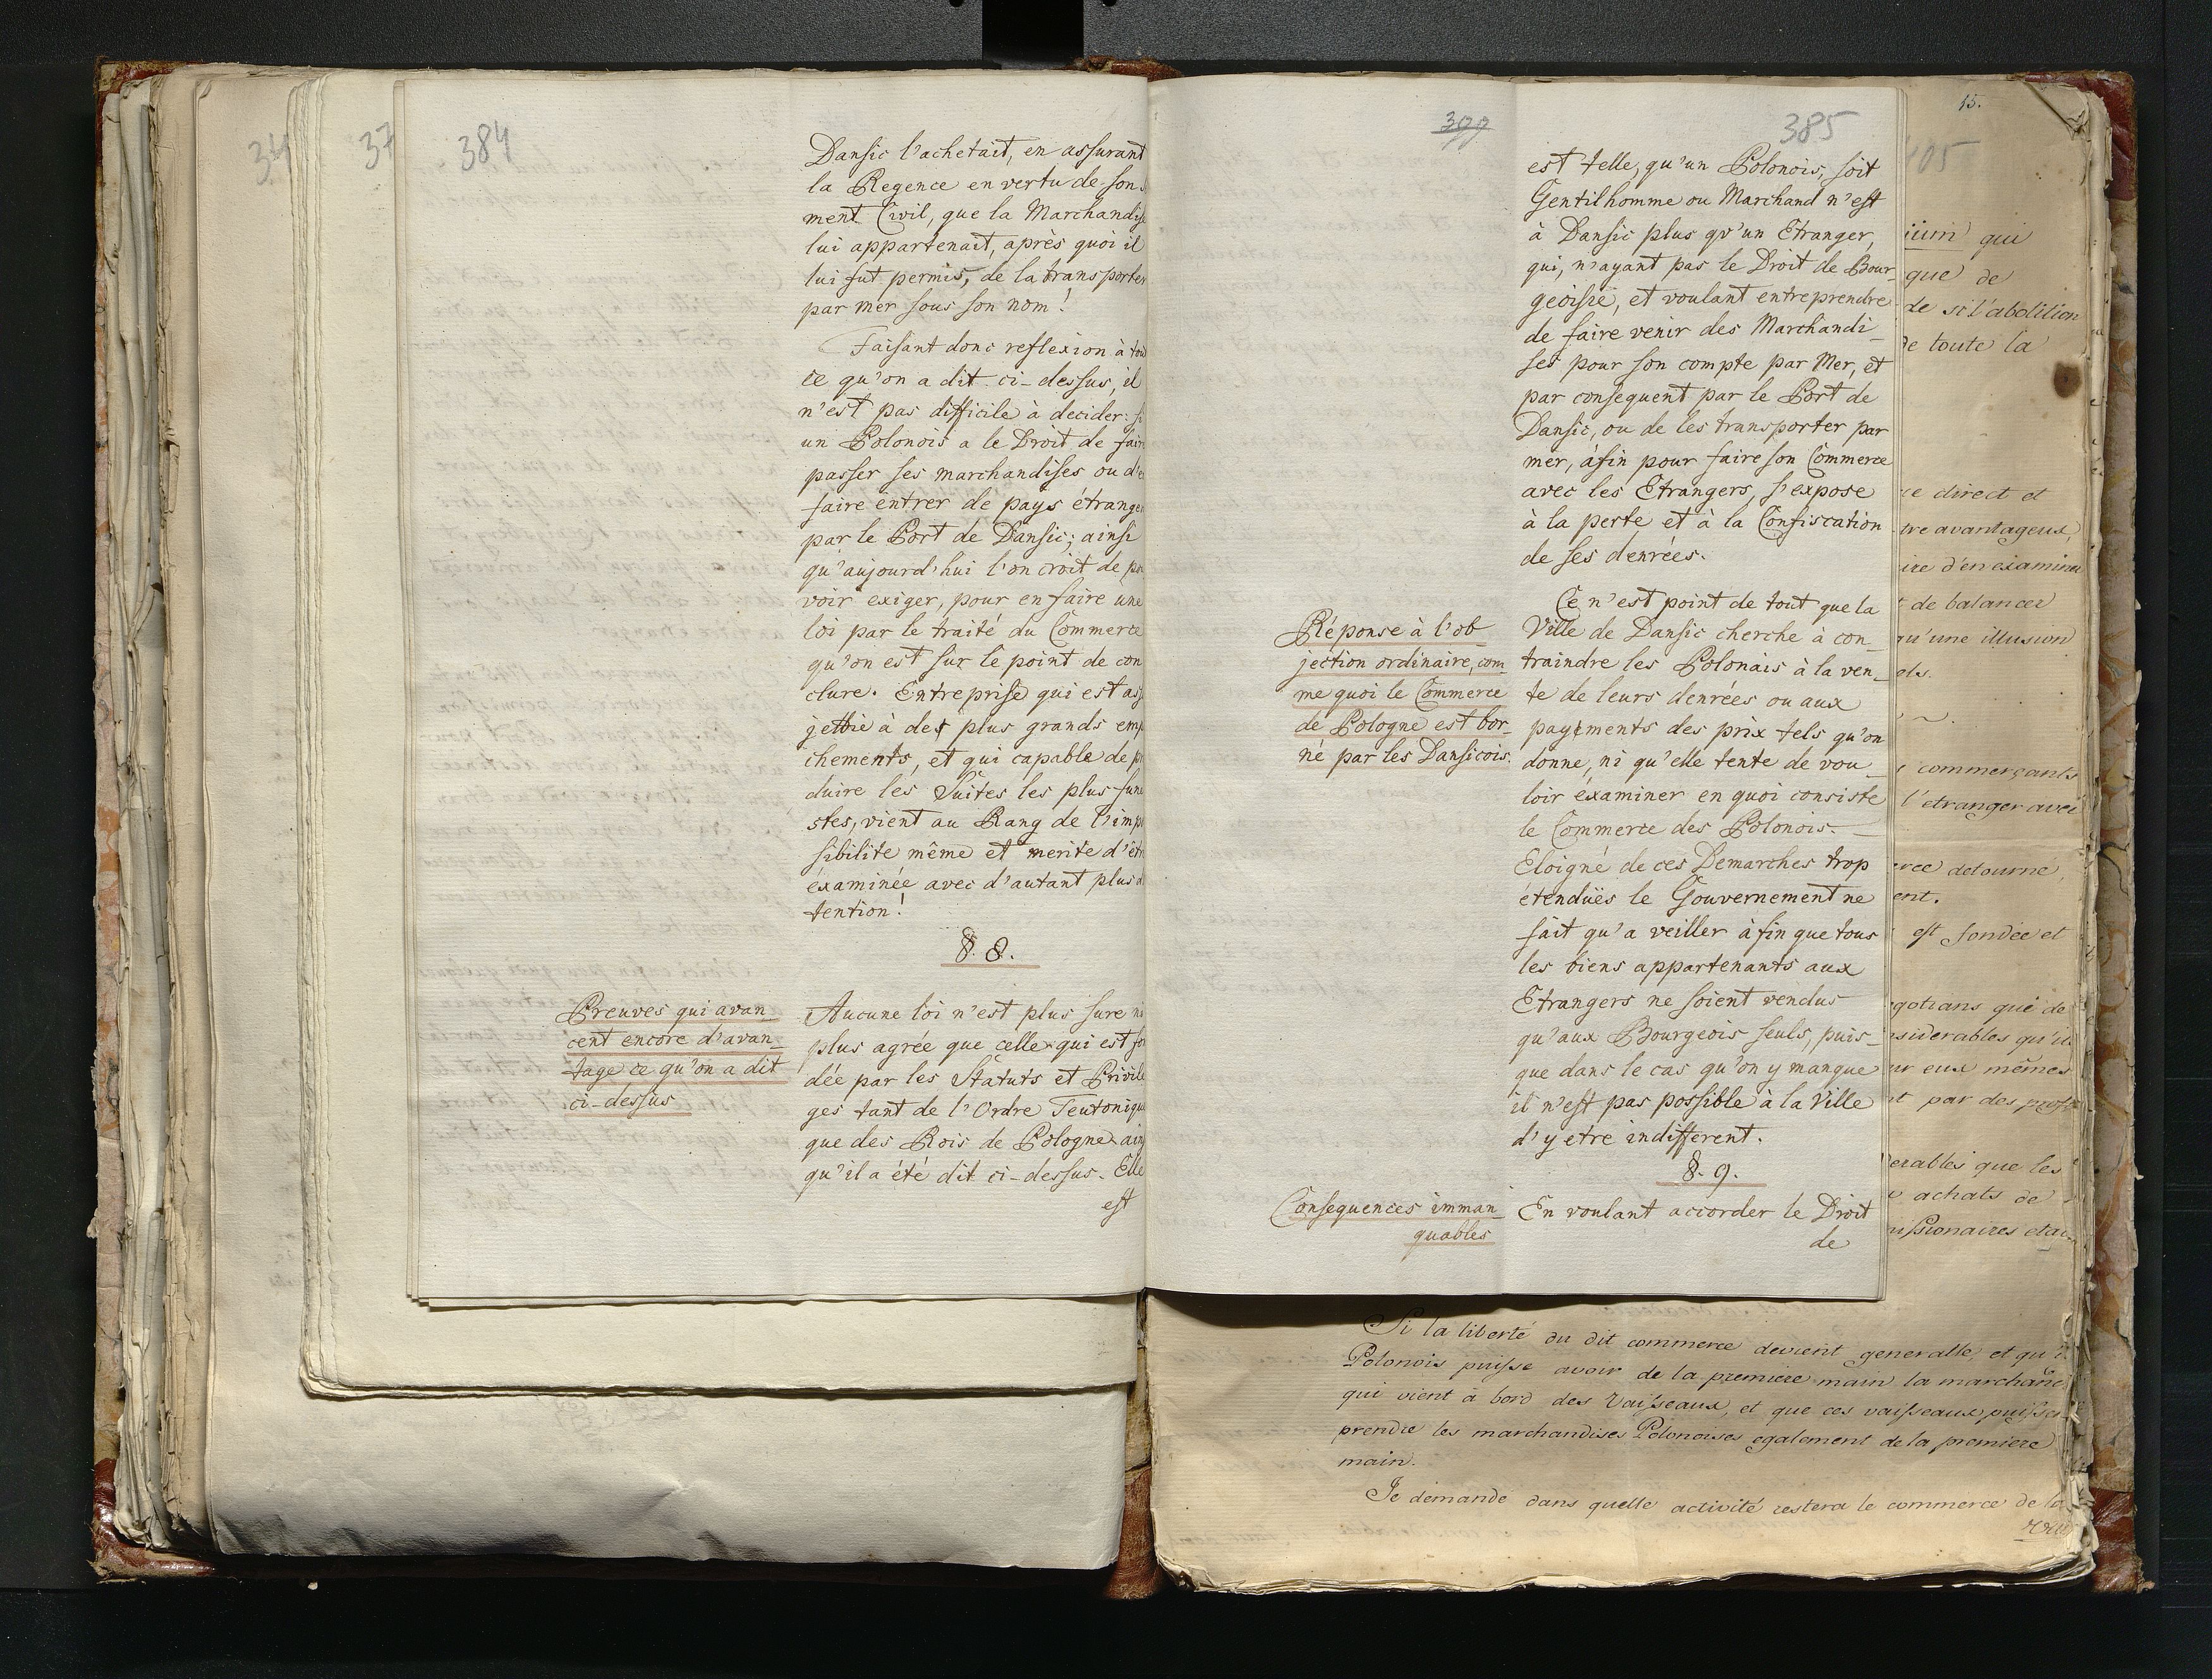 34
37
384
Dansic l'achetait, en assurant
la Regence en vertu de son
ment Civil, que la Marchandise
lui appartenait, après quoi il
lui fut permis, de la transporter
par mer sous son nom!
Faisant donc reflexion à tout
ce qu'on a dit ci-dessus, il
n'est pas difficile à decider: si
un Polonois a le Droit de fair
passer ses marchandises ou d'e
faire entrer de pays étranger
par le Port de Dansic; ainsi
qu'aujourd'hui l'on croit de po
voir exiger, pour en faire une
loi par le traité du Commerce
qu'on est sur le point de con
clure. Entreprise qui est as
jettie à des plus grands emp
chements, et qui capable de p
duire les Suites les plus fune
stes, vient au Rang de l'imp
sibilite même et merite d'êtr
éxaminée avec d'autant plus
tention!
§. 8.
Preuves qui avan_
cent encore d'avan_
tage ce qu'on a dit
ci-dessus
Aucune loi n'est plus sure ni
plus agrée que celle qui est fon
dée par les Statuts et Privile
ges tant de l'Ordre Teutonique
que des Rois de Pologne ain
qu'il a été dit ci-dessus. Elle
est
399
385
est telle, qu'un Polonois, soit
Gentilhomme ou Marchand n'est
à Dansic plus qu'un Etranger,
qui, n'ayant pas le Droit de Bour_
geoisie, et voulant entreprendre
de faire venir des Marchandi_
ses pour son compte par Mer, et
par consequent par le Port de
Dansic, ou de les transporter par
mer, àfin pour faire son Commerce
avec les Etrangers, s'expose
à la perte et à la Confiscation
de ses denrées.
Réponse à l'ob_
jection ordinaire, com_
me quoi le Commerce
de Pologne est bor_
né par les Dansicois.
Ce n'est point de tout que la
Ville de Dansic cherche à con_
traindre les Polonais à la ven_
te de leurs denrées ou aux
payements des prix tels qu'on
donne, ni qu'elle tente de vou_
loir éxaminer en quoi consiste
le Commerce des Polonois. _
Eloigné de ces Demarches trop
étenduës le Gouvernement ne
fait qu'a veiller àfin que tous
les biens appartenants aux
Etrangers ne soient vendus
qu'aux Bourgeois seuls, puis_
que dans le cas qu'on y manque
il n'est pas possible à la Ville
d'y etre indifferent.
§. 9.
Consequences imman_
quables
En voulant accorder le Droit
de
15.
405
ium qui
que de
de si l'abolition
de toute la
ce direct et
tre avantageux,
ire d'en examiner
t de balancer
qu'une illusion
ols.
commerçants
l'etranger avec
rce detourne,
ent.
est fondée et
gotians que de
siderables qu'il
ur eux mêmes
t par des
erables que les
achats de
ussionaires et
Si la liberté du dit commerce devient generalle, et qu
Polonois puisse avoir de la premiere main la marchand
qui vient à bord des Vaisseaux, et que ces vaisseaux puisse
prendre les marchandises Polonoises egalement de la premiere
main.
Je demande dans quelle activité restera le commerce de la